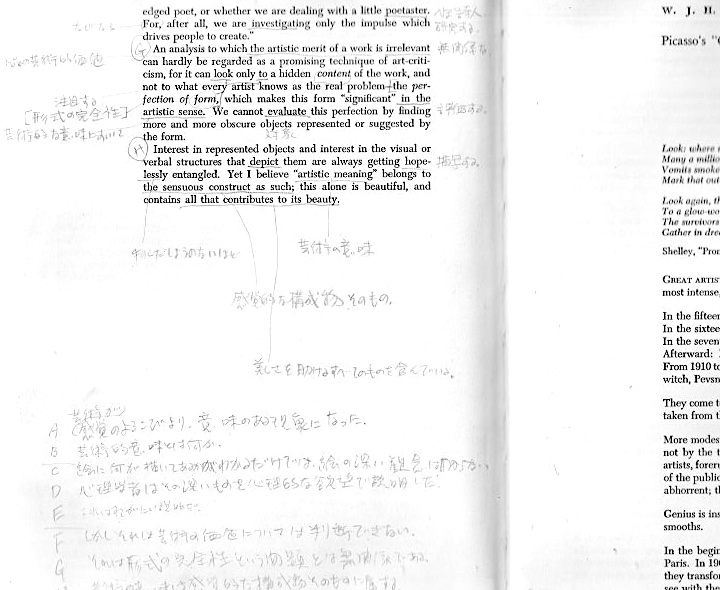 edged poet, or whether we are dealing with a little poetaster.
For, after all, we are investigating only the impulse which
drives people to create."
G An analysis to which the artistic merit of a work is irrelevant
can hardly be regarded as a promising technique of art-criti-
cism, for it can look only to a hidden content of the work, and
not to what every artist knows as the real problem—the per-
fection of form, which makes this form "significant" in the
artistic sense. We cannot evaluate this perfection by finding
more and more obscure objects represented or suggested by
the form.
H Interest in represented objects and interest in the visual or
verbal structures that depict them are always getting hope-
lessly entangled. Yet I believe "artistic meaning" belongs to
the sensuous construct as such; this alone is beautiful, and
contains all that contributes to its beauty.
注目する
[形式の完全性]
対象
芸術の意味
感覚的な構成物そのもの。
美しさを助けるすべてのものを含んでいる。
芸術が
A 感覚のよろこびより、意味のある現象になった。
B 芸術的意味とは何か。
C 絵に何が描いてあるかがわかるだけでは、絵の深い
D 心理学者はその深いものを心理的な欲望で説明した
E
F しかしそれは芸術の価値については判断できない。
G それは形式の完全性という問題とは無関係である。
W. J. H.
Picasso's "G
Look: where
Many a millio
Vomits smoke
Mark that out
Look again, th
To a glow-wo
The survivors
Gather in dre
Shelley, "Pro
GREAT ARTIS
most intense,
In the fifteen
In the sixtee
In the seven
Afterward:
From 1910 to
witch, Pevsn
They come t
taken from t
More modes
not by the t
artists, forer
of the public
abhorrent; th
Genius is ins
smooths.
In the begin
Paris. In 19
they transfor
see with the